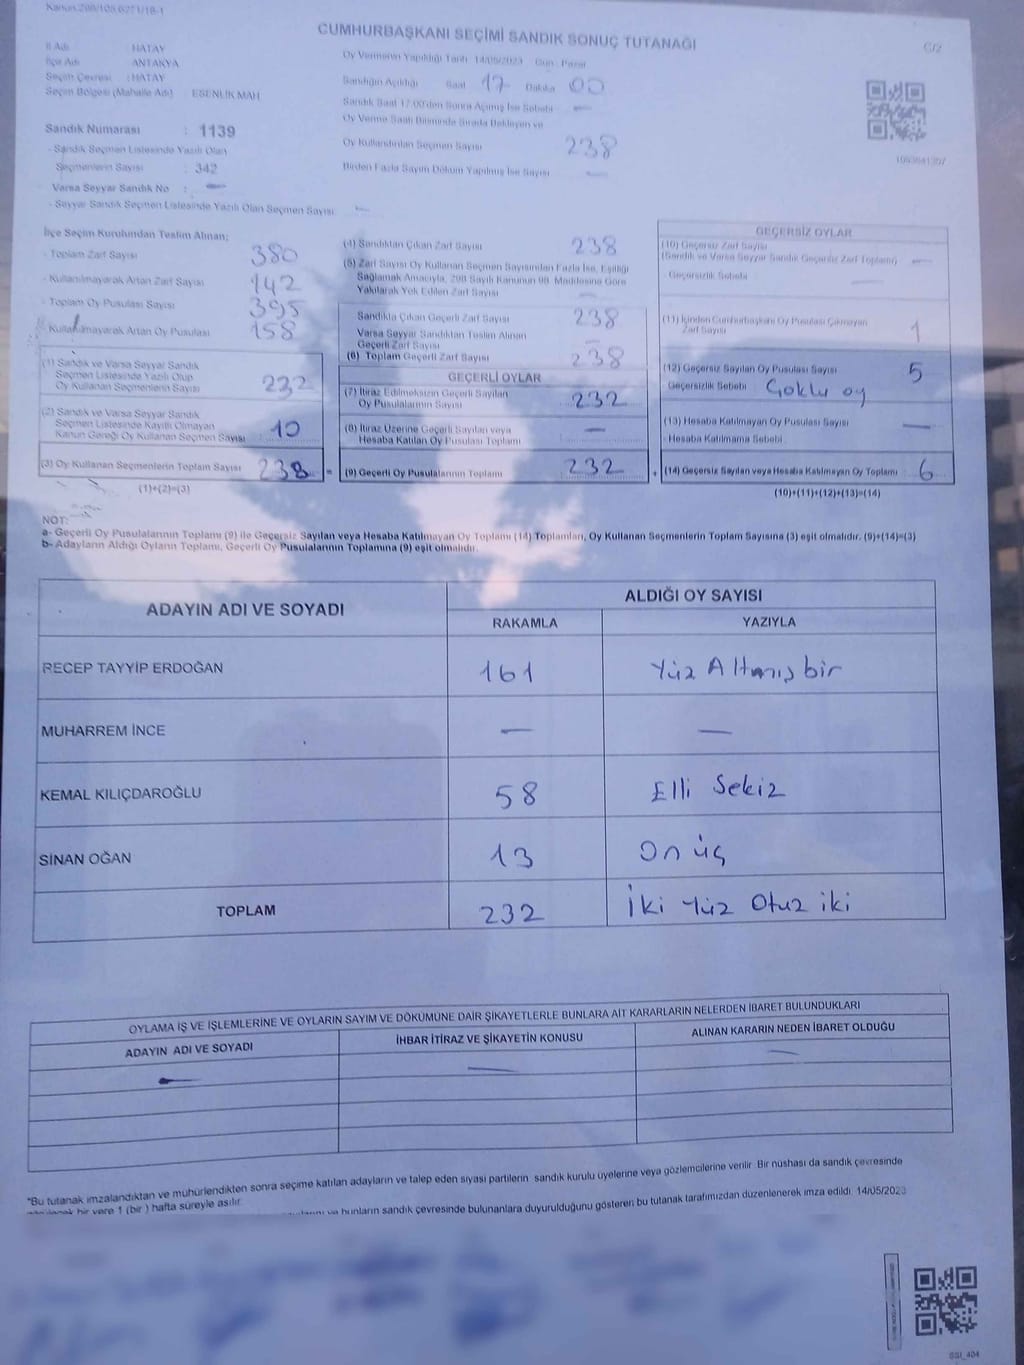 Kanun:298/105.6271/18-1
CUMHURBAŞKANI SEÇİMİ SANDIK SONUÇ TUTANAĞI
C/2
İl Adı : HATAY
İlçe Adı : ANTAKYA
Seçim Çevresi : HATAY
Seçim Bölgesi (Mahalle Adı) : ESENLİK MAH
Sandık Numarası : 1139
- Sandık Seçmen Listesinde Yazılı Olan
Seçmenlerin Sayısı : 342
Varsa Seyyar Sandık No : —
- Seyyar Sandık Seçmen Listesinde Yazılı Olan Seçmen Sayısı: —
Oy Vermenin Yapıldığı Tarih 14/05/2023 Gün : Pazar
Sandığın Açıldığı Saat 17 Dakika 00
Sandık Saat 17.00'den Sonra Açılmış İse Sebebi —
Oy Verme Saati Bitiminde Sırada Bekleyen ve
Oy Kullandırılan Seçmen Sayısı 238
Birden Fazla Sayım Döküm Yapılmış İse Sayısı —
İlçe Seçim Kurulundan Teslim Alınan;
- Toplam Zarf Sayısı 380
- Kullanılmayarak Artan Zarf Sayısı 142
- Toplam Oy Pusulası Sayısı 395
- Kullanılmayarak Artan Oy Pusulası 158
(1) Sandık ve Varsa Seyyar Sandık
Seçmen Listesinde Yazılı Olup
Oy Kullanan Seçmenlerin Sayısı 232
(2) Sandık ve Varsa Seyyar Sandık
Seçmen Listesinde Kayıtlı Olmayan
Kanun Gereği Oy Kullanan Seçmen Sayısı 10
(3) Oy Kullanan Seçmenlerin Toplam Sayısı 238 =
(1)+(2)=(3)
(4) Sandıktan Çıkan Zarf Sayısı 238
(5) Zarf Sayısı Oy Kullanan Seçmen Sayısından Fazla İse, Eşitliği
Sağlamak Amacıyla, 298 Sayılı Kanunun 98. Maddesine Göre
Yakılarak Yok Edilen Zarf Sayısı —
Sandıkta Çıkan Geçerli Zarf Sayısı 238
Varsa Seyyar Sandıktan Teslim Alınan
Geçerli Zarf Sayısı —
(6) Toplam Geçerli Zarf Sayısı 238
GEÇERLİ OYLAR
(7) İtiraz Edilmeksizin Geçerli Sayılan
Oy Pusulalarının Sayısı 232
(8) İtiraz Üzerine Geçerli Sayılan veya
Hesaba Katılan Oy Pusulası Toplamı —
(9) Geçerli Oy Pusulalarının Toplamı 232 +
GEÇERSİZ OYLAR
(10) Geçersiz Zarf Sayısı
(Sandık ve Varsa Seyyar Sandık Geçersiz Zarf Toplamı) —
- Geçersizlik Sebebi —
(11) İçinden Cumhurbaşkanı Oy Pusulası Çıkmayan
Zarf Sayısı 1
(12) Geçersiz Sayılan Oy Pusulası Sayısı 5
Geçersizlik Sebebi Çoklu oy
(13) Hesaba Katılmayan Oy Pusulası Sayısı —
- Hesaba Katılmama Sebebi
(14) Geçersiz Sayılan veya Hesaba Katılmayan Oy Toplamı 6
(10)+(11)+(12)+(13)=(14)
NOT:
a- Geçerli Oy Pusulalarının Toplamı (9) ile Geçersiz Sayılan veya Hesaba Katılmayan Oy Toplamı (14) Toplamları, Oy Kullanan Seçmenlerin Toplam Sayısına (3) eşit olmalıdır. (9)+(14)=(3)
b- Adayların Aldığı Oyların Toplamı, Geçerli Oy Pusulalarının Toplamına (9) eşit olmalıdır.
ADAYIN ADI VE SOYADI
ALDIĞI OY SAYISI
RAKAMLA YAZIYLA
RECEP TAYYİP ERDOĞAN 161 Yüz Altmış bir
MUHARREM İNCE — —
KEMAL KILIÇDAROĞLU 58 Elli Sekiz
SİNAN OĞAN 13 On üç
TOPLAM 232 İki Yüz Otuz iki
OYLAMA İŞ VE İŞLEMLERİNE VE OYLARIN SAYIM VE DÖKÜMÜNE DAİR ŞİKAYETLERLE BUNLARA AİT KARARLARIN NELERDEN İBARET BULUNDUKLARI
ADAYIN ADI VE SOYADI İHBAR İTİRAZ VE ŞİKAYETİN KONUSU ALINAN KARARIN NEDEN İBARET OLDUĞU
— — —
*Bu tutanak imzalandıktan ve mühürlendikten sonra seçime katılan adayların ve talep eden siyasi partilerin sandık kurulu üyelerine veya gözlemcilerine verilir. Bir nüshası da sandık çevresinde
bir yere 1 (bir ) hafta süreyle asılır.
ve bunların sandık çevresinde bulunanlara duyurulduğunu gösteren bu tutanak tarafımızdan düzenlenerek imza edildi. 14/05/2023
SSI_404